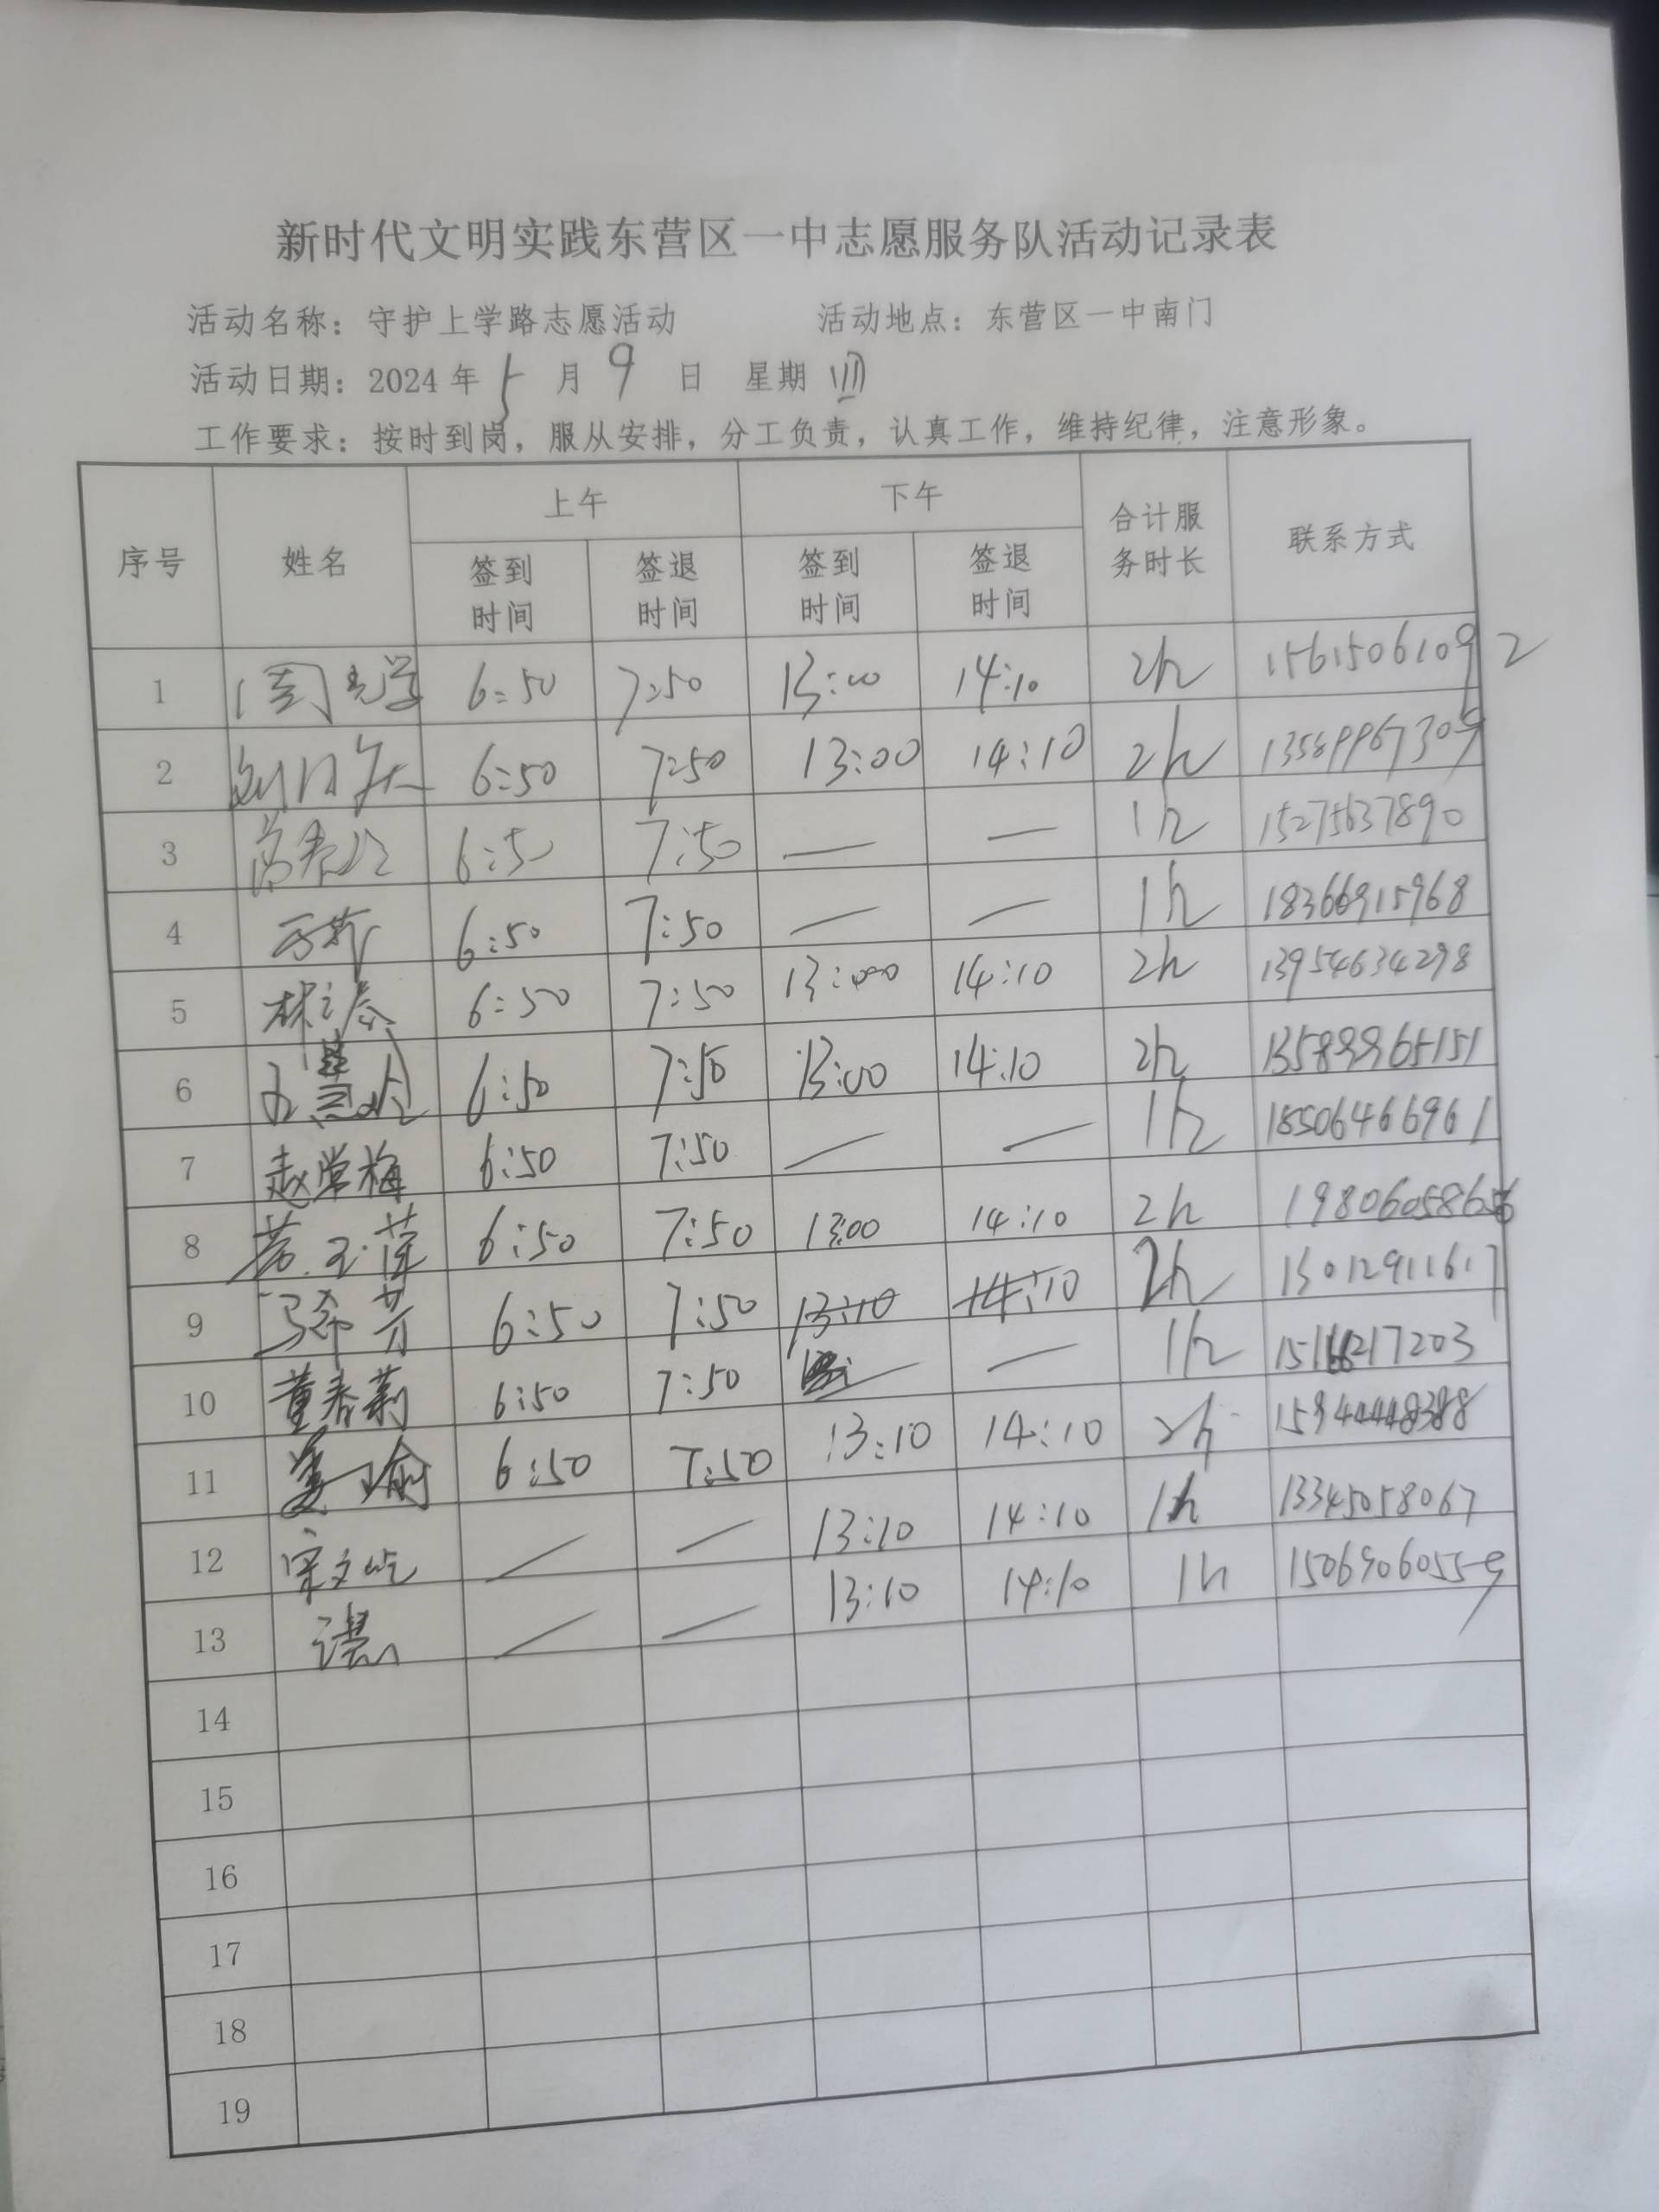 新时代文明实践东营区一中志愿服务队活动记录表
活动名称：守护上学路志愿活动 活动地点：东营区一中南门
活动日期：2024年 5 月 9 日 星期 四
工作要求：按时到岗，服从安排，分工负责，认真工作，维持纪律，注意形象。
序号 姓名 上午 下午 合计服务时长 联系方式
签到时间 签退时间 签到时间 签退时间
1 6:50 7:50 13:00 14:10 2h 15615061092
2 6:50 7:50 13:00 14:10 2h 13589967309
3 6:50 7:50 — — 1h 15275637890
4 6:50 7:50 — — 1h 18366915968
5 6:50 7:50 13:00 14:10 2h 13954634298
6 6:50 7:50 13:00 14:10 2h 13589965151
7 赵常梅 6:50 7:50 — — 1h 18506466961
8 6:50 7:50 13:00 14:10 2h
9 6:50 7:50 13:10 14:10 2h 13012911617
10 董春莉 6:50 7:50 — — 1h
11 姜瑜 6:50 7:50 13:10 14:10 2h
12 — — 13:10 14:10 1h 13345058067
13 — — 13:10 14:10 1h 15069060559
14
15
16
17
18
19